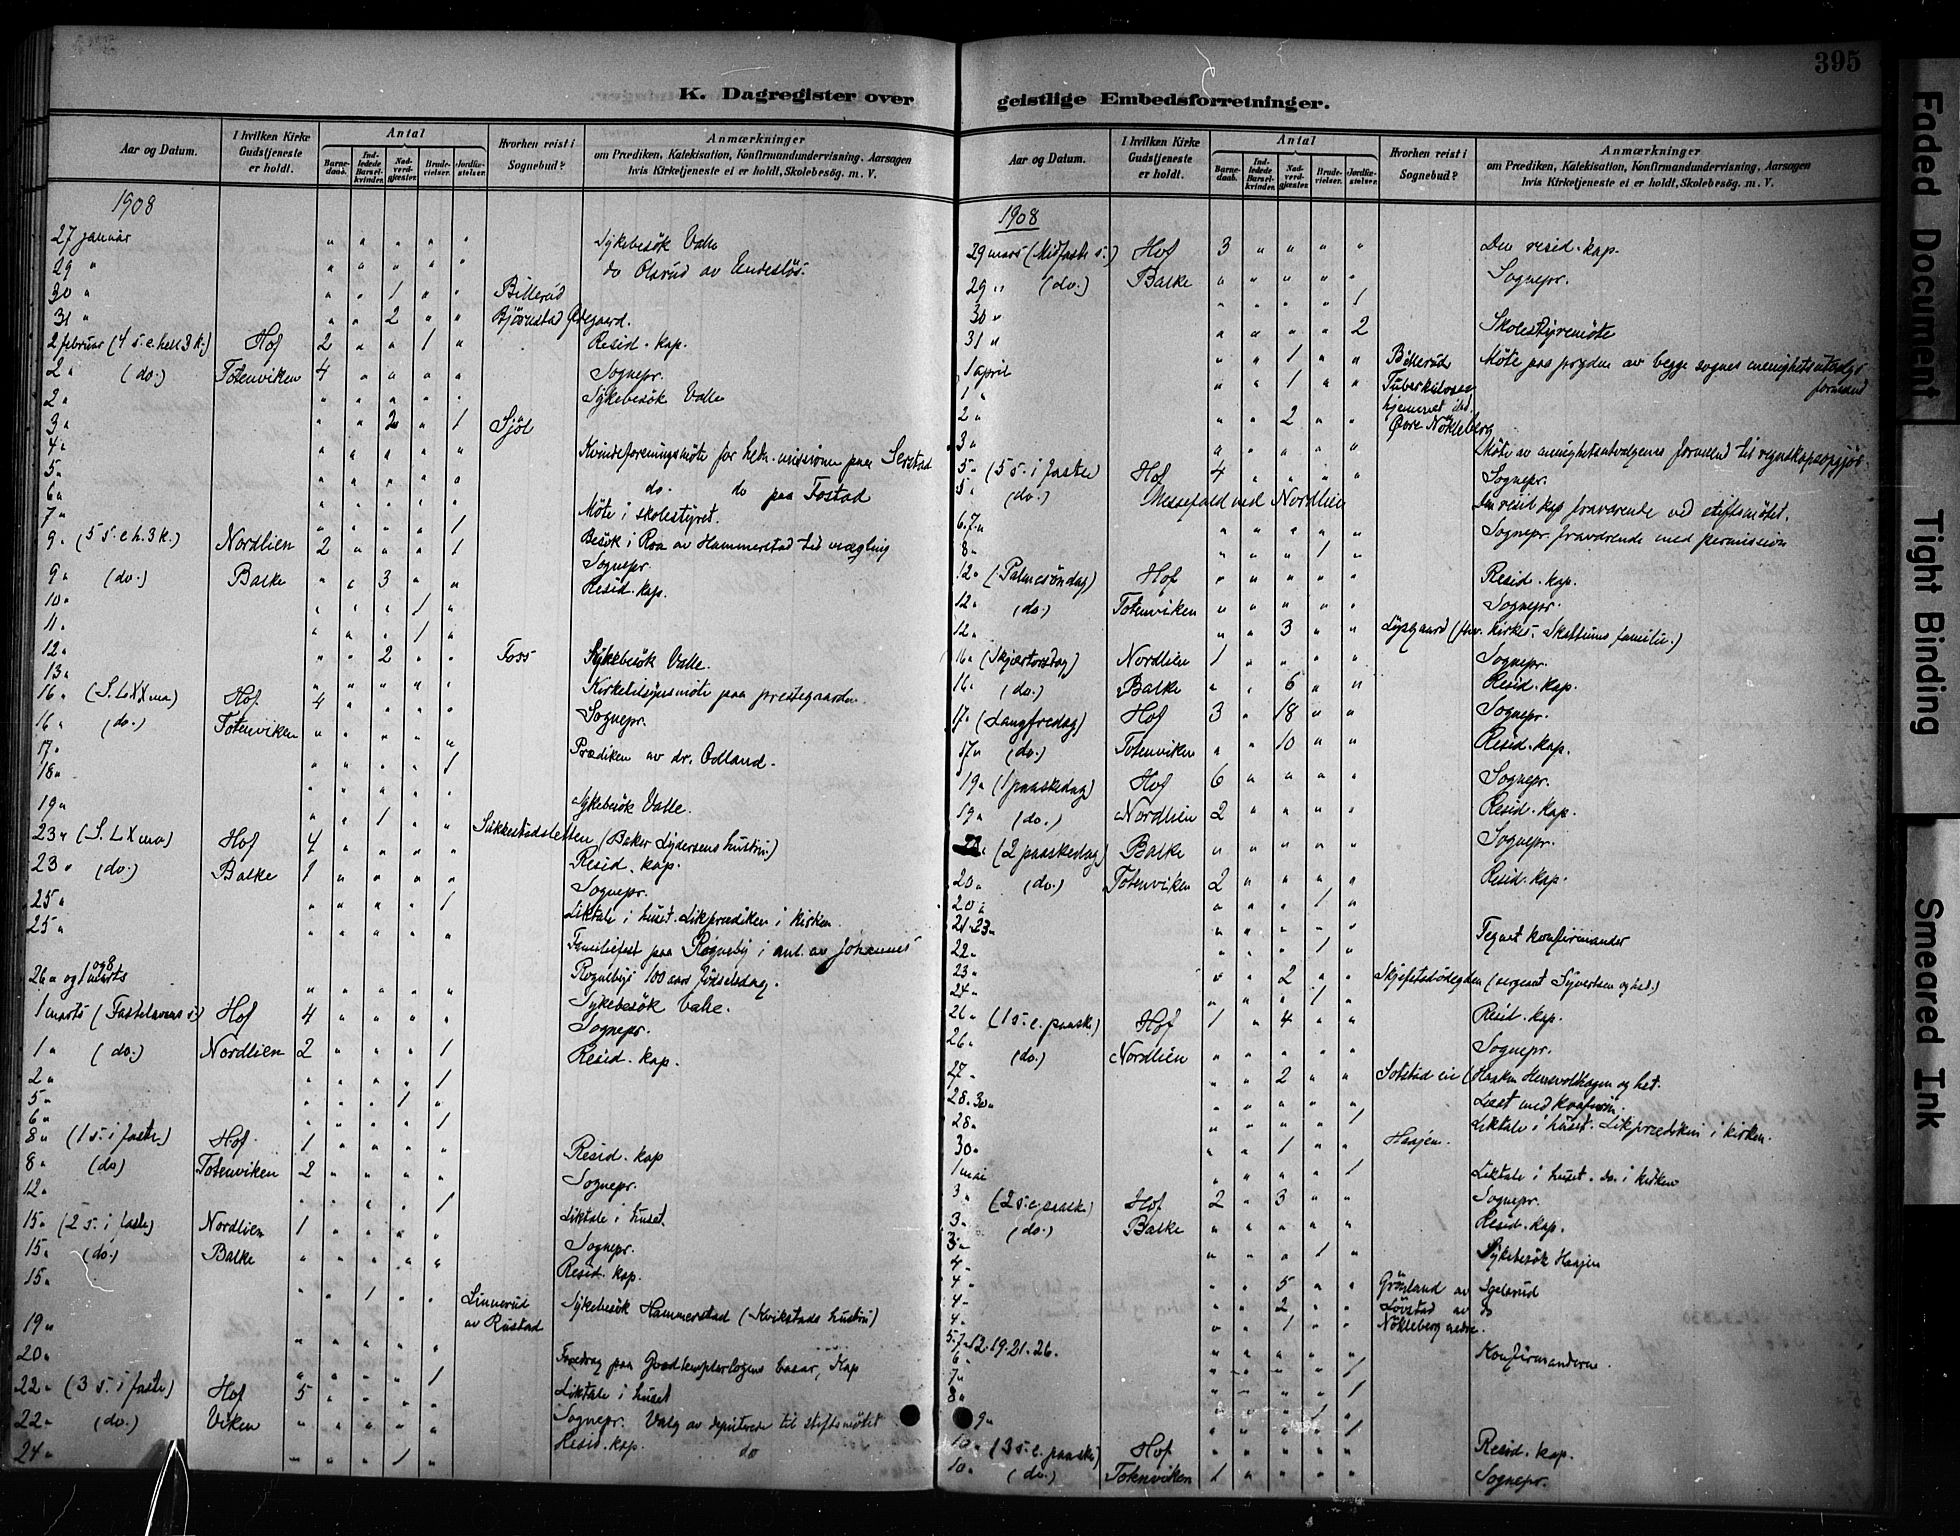 395
K. Dagregister over geistlige Embedsforretninger.
Aar og Datum. I hvilken Kirke Gudstjeneste er holdt. Antal Barne-daab. Ind-ledede Barsel-kvinder. Nad-verd-gjæster. Brude-vielser. Jordfæ-stelser. Hvorhen reist i Sognebud? Anmærkninger om Prædiken, Katekisation, Konfirmandundervisning, Aarsagen hvis Kirketjeneste ei er holdt, Skolebesøg. m. V.
1908
27 januar " " " " " Sykebesök Valle
29 " " " " " " do Olsrud av Endeslös.
30 " " " 1 " " Billerud
31 " " " 2 " " Bjørnstad Ødegaard.
2 februar (4 s. e. hell 3 k.) Hof 2 " " 1 " Resid. kap.
2 " (do.) Totenviken 4 " " " " Sognepr.
2 " " " " " " Sykebesök Valle
3 " " " 2 " 1 Sjöl
4 " " " " " " Kvindeforeningsmöte for hedn. missionen paa Serstad
5 " " " " " " do. do paa Fostad
6 " " " " " "
7 " " " " " 1 Möte i skolestyret.
9 " (5 s. e h. 3 k.) Nordlien 2 " " " 1 Besök i Roa av Hammerstad til mægling
Sognepr.
9 " (do.) Balke " " 3 " " Resid. kap.
10 " " " " 1 "
11 " " " " 1 "
12 " " " 2 " " Foss Sykebesök Valle.
13 " " " " " " Kirketilsynsmöte paa prestegaarden.
16 " (S. LXX ma) Hof 4 " " " " Sognepr.
16 " (do.) Totenviken " " " " "
17 " " " " " 1 Prædiken av dr. Odland.
18 "
19 " " " 1 " " Sykebesök Valle.
Sukkestadsletten (Baker Lydersens hustru)
23 " (S. LX ma) Hof 4 " " " " Resid. kap.
23 " (do.) Balke 1 " " " " Sognepr.
25 " " " " " 1 Liktale i huset. Likprædiken i kirken
25 " " " " " " Familiefest paa Rogneby i anl. av Johannes
Rognebys 100 aars födselsdag.
26 " og 1 og 8 marts " " " " " Sykebesök Valle.
1 marts (Fastelavens s.) Hof 4 " " " " Sognepr.
1 " (do.) Nordlien 2 " " " 1 Resid. kap.
2 " " " " " 1
5 " " " " 1 "
6 " " " " " 1
8 " (1 s. i faste) Hof 1 " " " " Resid. kap
8 " (do) Totenviken 2 " " " " Sognepr.
12 " " " " " 1 Liktale i huset
15 " (2 s. i faste) Nordlien 1 " " " " Sognepr.
15 " (do.) Balke " " " " " Resid. kap.
15 " " " 1 " " Linnerud av Rustad Sykebesök Hammerstad (Kvikstads hustru)
19 " " " " " "
20 " " " " " 1 Foredrag paa Goodtemplerlogens basar, Kap
22 " (3 s. i faste) Hof 5 " " " " Liktale i huset
22 " (do.) Viken " " " " " Sognepr. Valg av deputerede til stiftsmötet
24 " " " " 1 " Resid. kap. do
Aar og Datum. I hvilken Kirke Gudstjeneste er holdt. Antal Barne-daab. Ind-ledede Barsel-kvinder. Nad-verd-gjæster. Brude-vielser. Jordfæ-stelser. Hvorhen reist i Sognebud? Anmærkninger om Prædiken, Katekisation, Konfirmandundervisning, Aarsagen hvis Kirketjeneste ei er holdt, Skolebesøg. m. V.
1908
29 mars (Midfaste s.) Hof 3 " " " " Den resid. kap.
29 " (do.) Balke " " " " " Sognepr.
30 " " " " " 1
31 " " " " " 2 Skolestyremöte
1 april " " 1 " " Billerud Möte paa prgden av begge sognes menighetsutvalgs formænd
1 " " " 1 " " Tuberkulosehjemmet ibd.
2 " " " 2 " " Øvre Nökleberg
3 " " " " " " Möte av menighetsutvalgenes formænd til regnskapsopgjör.
5 " (5 s. i faste) Hof 4 " " " " Sognepr.
5 " (do.) Messefald ved Nordlien Den resid kap fraværende ved stiftsmötet.
6. 7. " " " " " " Sognepr. fraværende med permission
8 " " " " 1 "
12 " (Palmesöndag) Hof " " " " " Resid. kap.
12 " (do.) Totenviken " " " " " Sognepr.
12 " " " 3 " " Lysgaard (fhv. kirkes. Skattums familie.)
16 " (Skjærtorsdag) Nordlien 1 " " " " Sognepr.
16 " (do.) Balke " " 6 " " Resid. kap.
17 " (Langfredag) Hof 3 " 18 " " Sognepr.
17 " (do.) Totenviken " " 10 " " Resid. kap.
19 " (1 paaskedag) Hof 6 " " " " Sognepr.
19 " (do.) Nordlien 2 " " " " Resid. kap.
20 " (2 paaskedag) Balke " " " " " Sognepr.
20 " (do.) Totenviken 2 " " " " Resid. kap.
20 " " " " 1 "
21. 23 " " " " " " Tegnet konfirmander
22 " " " " 1 "
23 " " " 2 " " Skjefstadødegden (sergeant Syvertsen og het.)
24 " " " " 1 "
26 " (1 s. e. paaske) Hof 1 " 4 " " Resid. kap.
26 " (do.) Nordlien " " " " " Sognepr.
27 " " " 2 " " Sotstad eie (Haakon Hensvolhagen og het.
28. 30 " " " " " " Læst med konfirm.
28 " " " " " 1 Liktale i huset. Likprædiken i kirken.
30 " " " 1 " " Haajen.
1 mai " " " " 1 Liktale i huset. do. i kirken
3 " (2 s. e. paaske) Hof 2 " 3 " " Sognepr.
3 " (do.) Balke " " " " " Resid. kap.
3 " " " " 1 " Sykebesök Haajen
4 "
4 " " " 5 " " Grönland av Igelsrud
4 " " " 2 " " Lövstad av do
4 " " " 1 " " Nökleberg nedre.
5. 7. 12. 19. 21. 26. " " " " " Konfirmanderne.
6 " " " " " 1
7 "
8 " " " " " 1
9 " " " " 1 1
10 " (3 s. e. paaske) Hof " " " " " Resid. kap.
10 " (do.) Totenviken 1 " " " " Sognepr.
Faded Document
Tight Binding
Smeared Ink